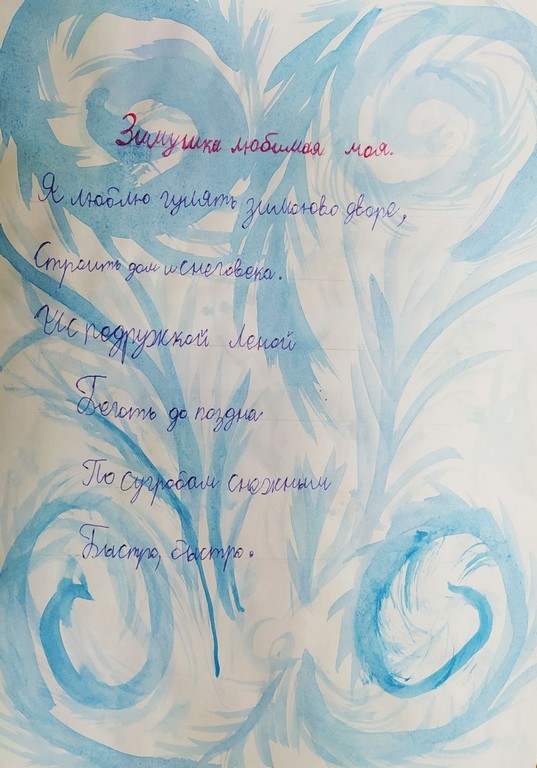 Зимушка любимая моя.
Я люблю гулять зимою во дворе,
Строить дом и снеговека.
И с подружкой Леной
Бегать до поздна
По сугробам снежным
Быстро, быстро.